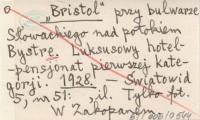 „Bristol" przy bulwarze
Słowackiego nad potokiem
Bystre. Luksusowy hotel-
-pensjonat pierwszej kate-
gorji. 1928. — Światowid
5, nr 51: il. Tylko fot.
W Zakopanem